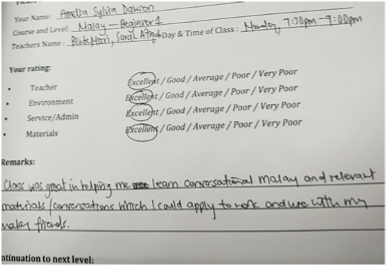 Your Name: Amelia Sylvia Dawson
Course and Level: Malay - Beginner 1
Teachers Name: Day & Time of Class: Monday, 7:30pm - 9:00pm
Your rating:
• Teacher Excellent / Good / Average / Poor / Very Poor
• Environment Excellent / Good / Average / Poor / Very Poor
• Service/Admin Excellent / Good / Average / Poor / Very Poor
• Materials Excellent / Good / Average / Poor / Very Poor
Remarks:
Class was great in helping me learn conversational malay and relevant
materials/conversations which I could apply to work and use with my
malay friends.
ntinuation to next level: